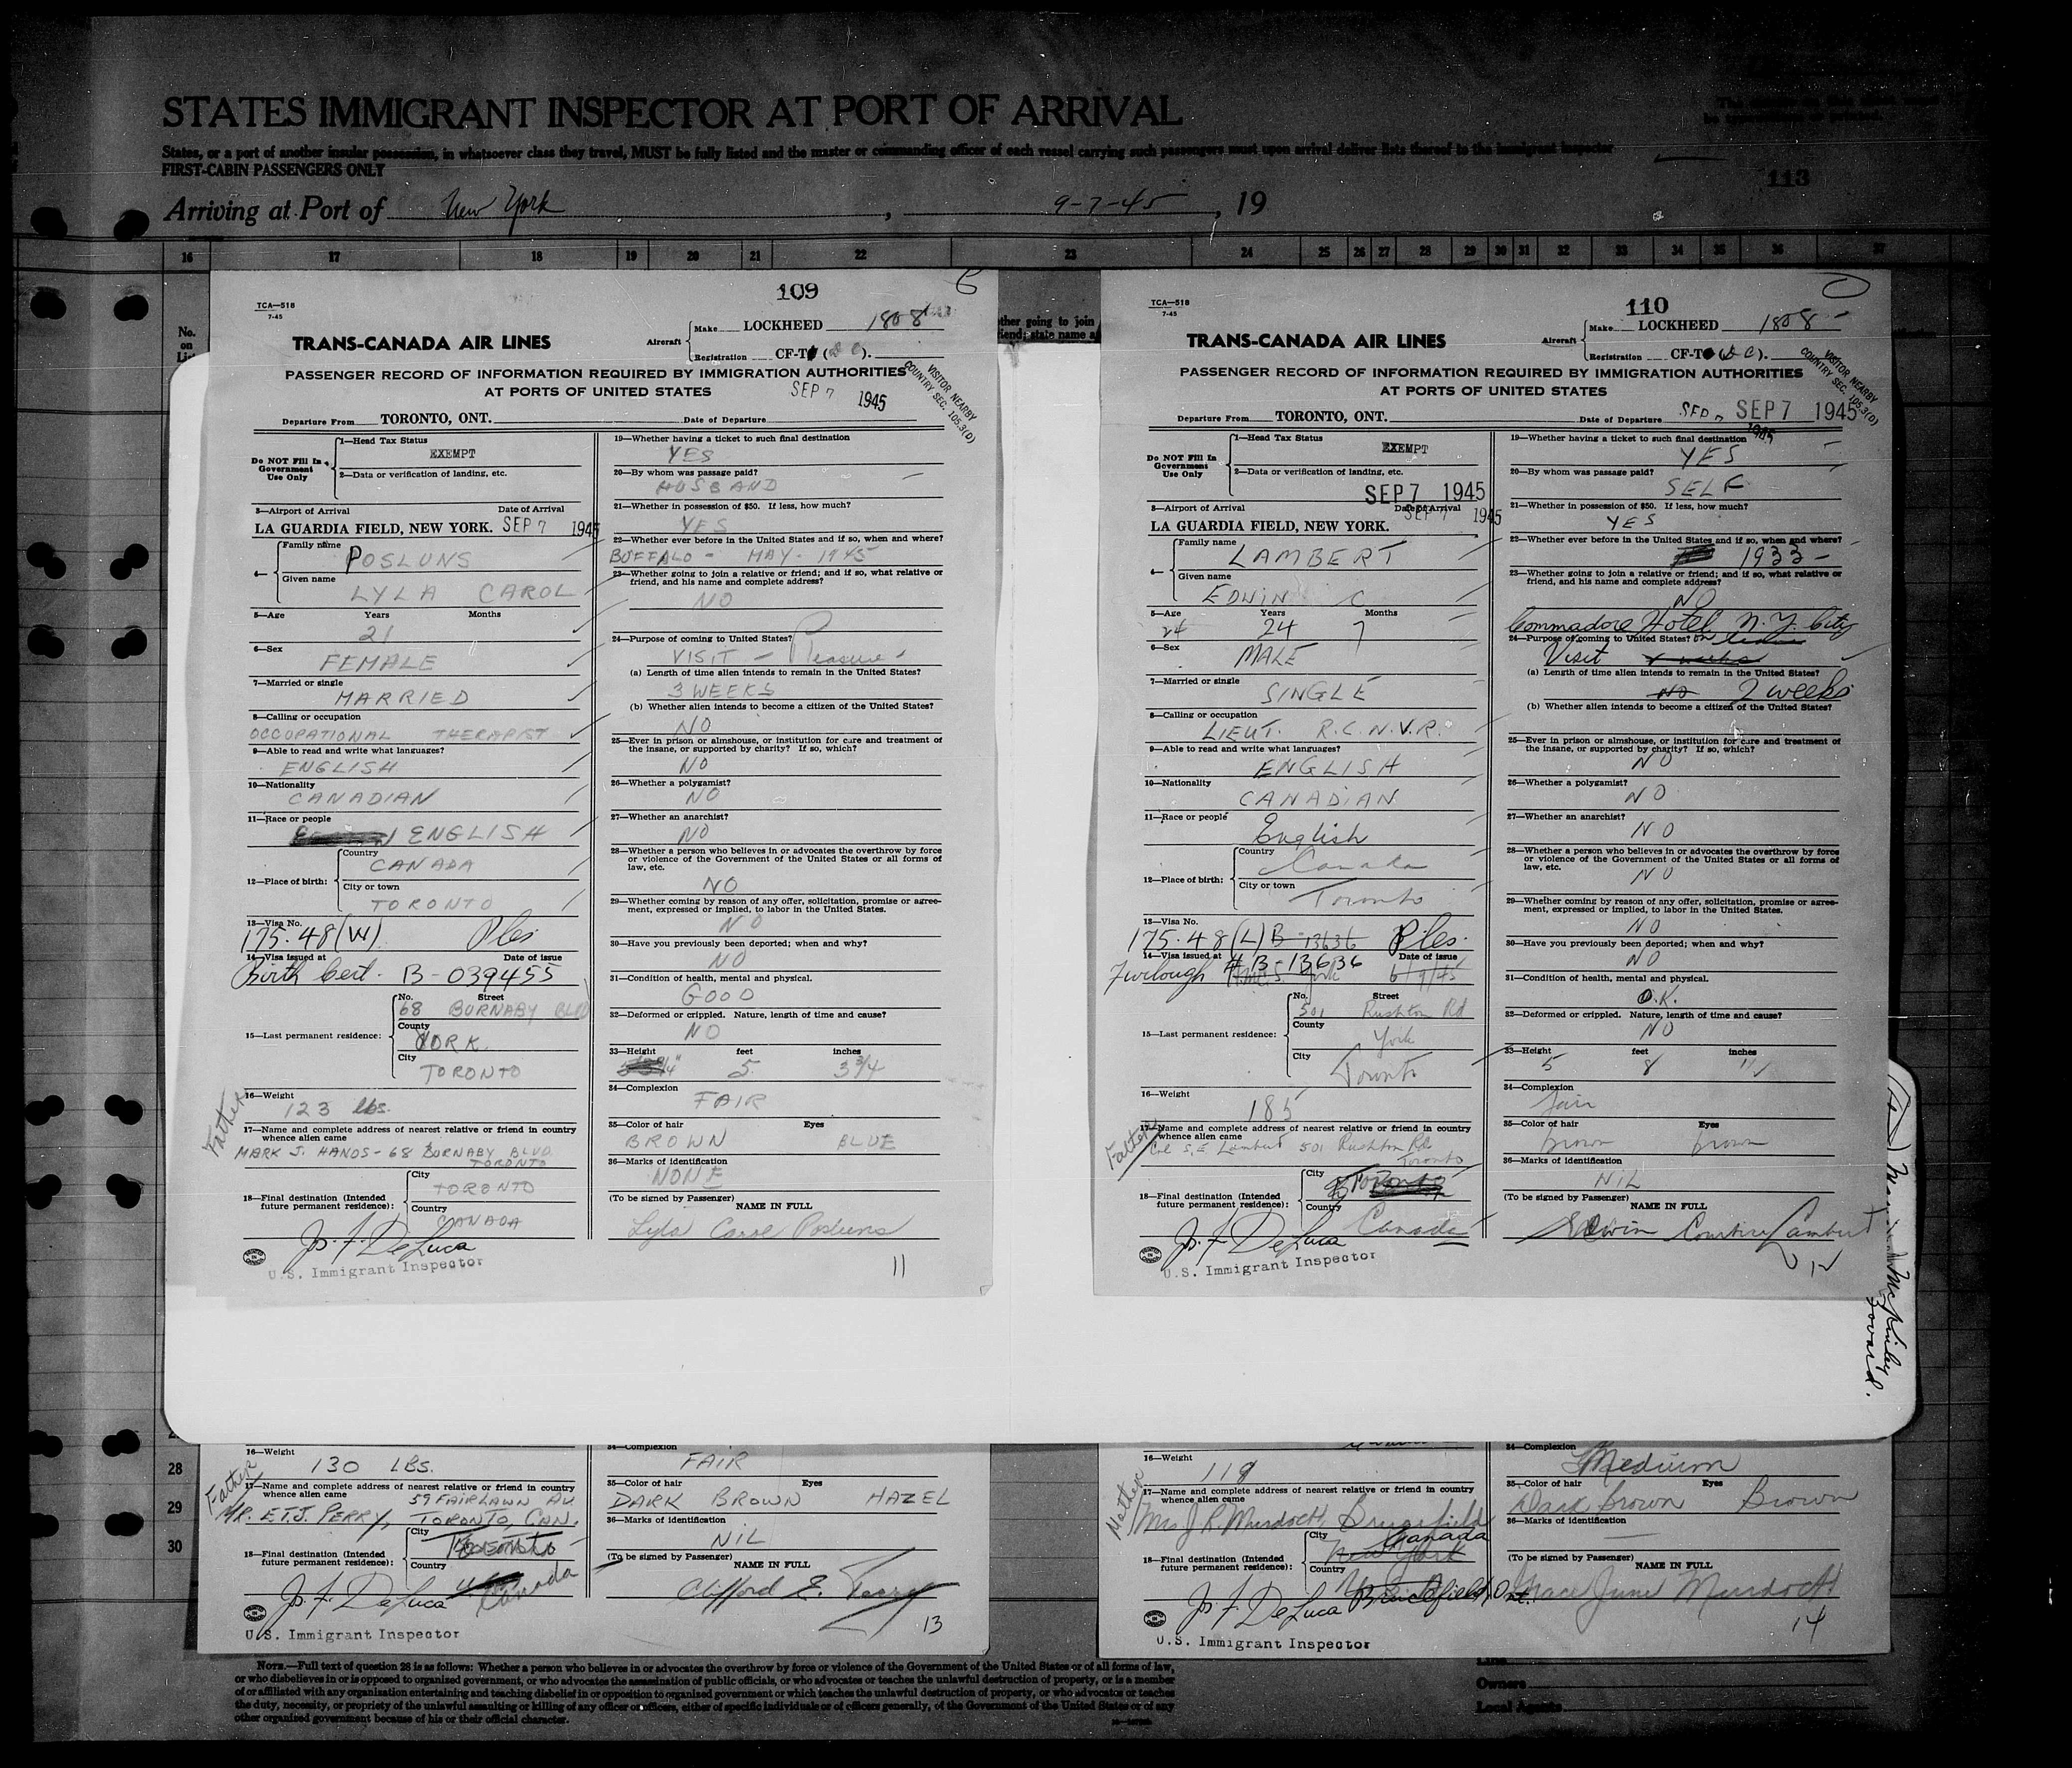 STATES IMMIGRANT INSPECTOR AT PORT OF ARRIVAL
States, or a port of another insular possession, in whatsoever class they travel, MUST be fully listed and the master or commanding officer of each vessel carrying such passengers must upon arrival deliver lists thereof to the immigrant inspector
FIRST-CABIN PASSENGERS ONLY
113
Arriving at Port of New York, 9-7-45, 19
16 17 18 19 20 21 22 23 24 25 26 27 28 29 30 31 32 33 34 35 36 37
No.
on
109
TCA—518
7-45
TRANS-CANADA AIR LINES
Aircraft
Make LOCKHEED 1808
Registration CF-T
PASSENGER RECORD OF INFORMATION REQUIRED BY IMMIGRATION AUTHORITIES
AT PORTS OF UNITED STATES
SEP 7 1945
VISITOR NEARBY
COUNTRY SEC. 105.3(D)
Departure From TORONTO, ONT. Date of Departure
Do NOT Fill In
Government
Use Only
1—Head Tax Status
EXEMPT
2—Data or verification of landing, etc.
3—Airport of Arrival Date of Arrival
LA GUARDIA FIELD, NEW YORK. SEP 7 1945
4— Family name
POSLUNS
Given name
LYLA CAROL
5—Age Years Months
21
6—Sex
FEMALE
7—Married or single
MARRIED
8—Calling or occupation
OCCUPATIONAL THERAPIST
9—Able to read and write what languages?
ENGLISH
10—Nationality
CANADIAN
11—Race or people
ENGLISH
12—Place of birth:
Country
CANADA
City or town
TORONTO
13—Visa No.
175.48(W) Ples
14—Visa issued at Date of issue
Birth Cert. B-039455
15—Last permanent residence:
No. Street
68 BURNABY BLVD
County
YORK
City
TORONTO
16—Weight
123 lbs.
Father
17—Name and complete address of nearest relative or friend in country
whence alien came
MARK J. HANDS - 68 BURNABY BLVD.
TORONTO
18—Final destination (Intended
future permanent residence):
City
TORONTO
Country
CANADA
Jo. F. DeLuca
U.S. Immigrant Inspector
19—Whether having a ticket to such final destination
YES
20—By whom was passage paid?
HUSBAND
21—Whether in possession of $50. If less, how much?
YES
22—Whether ever before in the United States and if so, when and where?
BUFFALO - MAY - 1945
23—Whether going to join a relative or friend; and if so, what relative or
friend, and his name and complete address?
NO
24—Purpose of coming to United States?
VISIT - Pleasure -
(a) Length of time alien intends to remain in the United States?
3 WEEKS
(b) Whether alien intends to become a citizen of the United States?
NO
25—Ever in prison or almshouse, or institution for care and treatment of
the insane, or supported by charity? If so, which?
NO
26—Whether a polygamist?
NO
27—Whether an anarchist?
NO
28—Whether a person who believes in or advocates the overthrow by force
or violence of the Government of the United States or all forms of
law, etc.
NO
29—Whether coming by reason of any offer, solicitation, promise or agree-
ment, expressed or implied, to labor in the United States.
NO
30—Have you previously been deported; when and why?
NO
31—Condition of health, mental and physical.
GOOD
32—Deformed or crippled. Nature, length of time and cause?
NO
33—Height feet inches
5 3 3/4
34—Complexion
FAIR
35—Color of hair Eyes
BROWN BLUE
36—Marks of identification
NONE
(To be signed by Passenger)
NAME IN FULL
Lyla Carol Posluns
11
110
TCA—518
7-45
TRANS-CANADA AIR LINES
Aircraft
Make LOCKHEED 1808
Registration CF-T
PASSENGER RECORD OF INFORMATION REQUIRED BY IMMIGRATION AUTHORITIES
AT PORTS OF UNITED STATES
VISITOR NEARBY
COUNTRY SEC. 105.3(D)
Departure From TORONTO, ONT. Date of Departure SEP 7 1945
Do NOT Fill In
Government
Use Only
1—Head Tax Status
EXEMPT
2—Data or verification of landing, etc.
SEP 7 1945
3—Airport of Arrival Date of Arrival
LA GUARDIA FIELD, NEW YORK. SEP 7 1945
4— Family name
LAMBERT
Given name
EDWIN C
5—Age Years Months
24 24 7
6—Sex
MALE
7—Married or single
SINGLE
8—Calling or occupation
LIEUT. R.C.N.V.R.
9—Able to read and write what languages?
ENGLISH
10—Nationality
CANADIAN
11—Race or people
English
12—Place of birth:
Country
Canada
City or town
Toronto
13—Visa No.
175.48(L) B-13636 Ples.
14—Visa issued at Date of issue
Furlough # B-13636 6/9/45
15—Last permanent residence:
No. Street
501 Rushton Rd
County
York
City
Toronto
16—Weight
185
Father
17—Name and complete address of nearest relative or friend in country
whence alien came
Col S.E Lambert 501 Rushton Rd
Toronto
18—Final destination (Intended
future permanent residence):
City
Toronto
Country
Canada
Jo. F. DeLuca
U.S. Immigrant Inspector
19—Whether having a ticket to such final destination
YES
20—By whom was passage paid?
SELF
21—Whether in possession of $50. If less, how much?
YES
22—Whether ever before in the United States and if so, when and where?
1933 -
23—Whether going to join a relative or friend; and if so, what relative or
friend, and his name and complete address?
NO
Commadore Hotel N.Y. City
24—Purpose of coming to United States?
Visit
(a) Length of time alien intends to remain in the United States?
NO 2 weeks
(b) Whether alien intends to become a citizen of the United States?
25—Ever in prison or almshouse, or institution for care and treatment of
the insane, or supported by charity? If so, which?
NO
26—Whether a polygamist?
NO
27—Whether an anarchist?
NO
28—Whether a person who believes in or advocates the overthrow by force
or violence of the Government of the United States or all forms of
law, etc.
NO
29—Whether coming by reason of any offer, solicitation, promise or agree-
ment, expressed or implied, to labor in the United States.
NO
30—Have you previously been deported; when and why?
NO
31—Condition of health, mental and physical.
O.K.
32—Deformed or crippled. Nature, length of time and cause?
NO
33—Height feet inches
5 8
34—Complexion
fair
35—Color of hair Eyes
brown brown
36—Marks of identification
NIL
(To be signed by Passenger)
NAME IN FULL
Edwin Lambert
12
28
29
30
16—Weight
130 LBS.
Father
17—Name and complete address of nearest relative or friend in country
whence alien came 59 FAIRLAWN AV
MR. E.T.J. PERRY, TORONTO, CAN.
18—Final destination (Intended
future permanent residence):
City
Toronto
Country
Canada
Jo. F. DeLuca
U.S. Immigrant Inspector
34—Complexion
FAIR
35—Color of hair Eyes
DARK BROWN HAZEL
36—Marks of identification
NIL
(To be signed by Passenger)
NAME IN FULL
Clifford E. Perry
13
16—Weight
118
Mother
17—Name and complete address of nearest relative or friend in country
whence alien came
Mrs J R Murdoch, Brucefield
Canada
18—Final destination (Intended
future permanent residence):
City
New York
Country
Brucefield, Ont.
Jo. F. DeLuca
U.S. Immigrant Inspector
34—Complexion
Medium
35—Color of hair Eyes
Dark brown Brown
36—Marks of identification
(To be signed by Passenger)
NAME IN FULL
Grace June Murdoch
14
NOTE.—Full text of question 28 is as follows: Whether a person who believes in or advocates the overthrow by force or violence of the Government of the United States or of all forms of law,
or who disbelieves in or is opposed to organized government, or who advocates the assassination of public officials, or who advocates or teaches the unlawful destruction of property, or is a member
of or affiliated with any organization entertaining and teaching disbelief in or opposition to organized government or which teaches the unlawful destruction of property, or who advocates or teaches
the duty, necessity, or propriety of the unlawful assaulting or killing of any officer or officers, either of specific individuals or of officers generally, of the Government of the United States or of any
other organized government because of his or their official character.
Owners
Local Agents